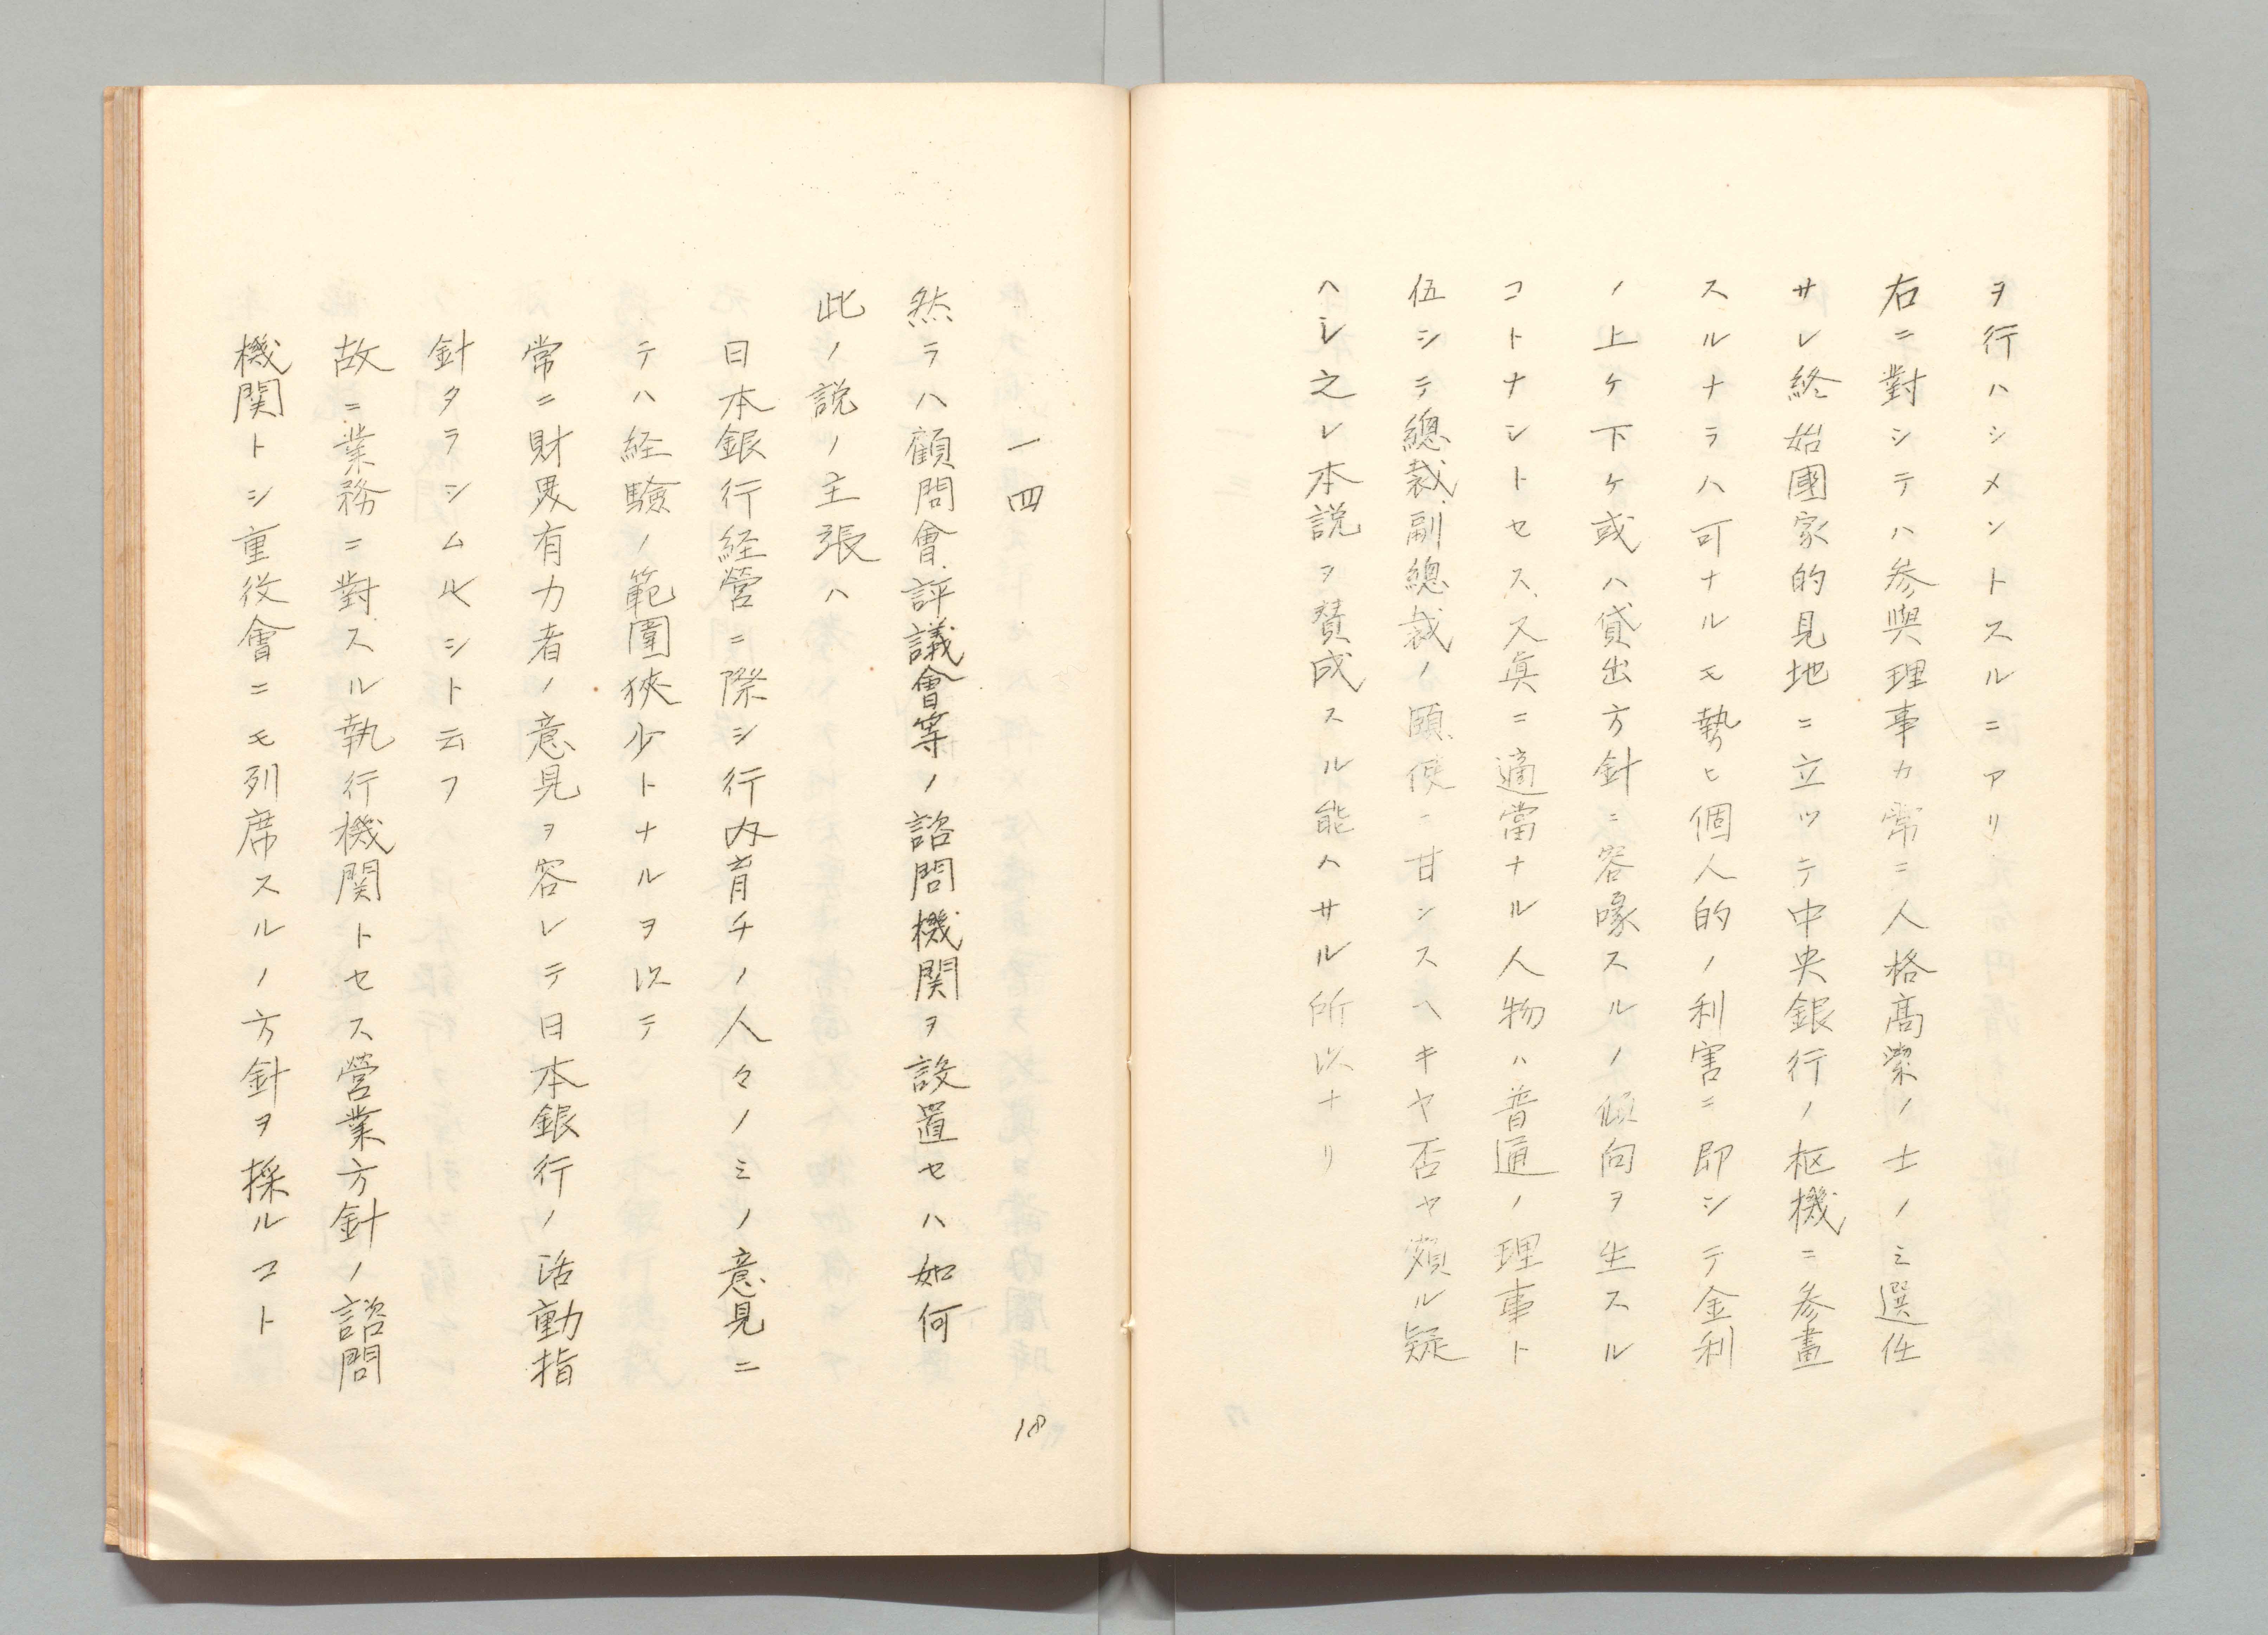 ヲ行ハシメントスルニアリ
右ニ對シテハ参與理事カ常ニ人格高潔ノ士ノミ選任
サレ終始國家的見地ニ立ツテ中央銀行ノ枢機ニ参畫
スルナラハ可ナルモ勢ヒ個人的ノ利害ニ即シテ金利
ノ上ケ下ケ或ハ貸出方針ニ容喙スルノ傾向ヲ生スル
コトナシトセス、又眞ニ適當ナル人物ハ普通ノ理事ト
伍シテ總裁、副總裁ノ頤使ニ甘ンスヘキヤ否ヤ頗ル疑
ヘシ之レ本説ヲ賛成スル能ハサル所以ナリ
一四
然ラハ顧問會、評議會等ノ諮問機関ヲ設置セハ如何
此ノ説ノ主張ハ
日本銀行経營ニ際シ行内育チノ人々ノミノ意見ニ
テハ経験ノ範圍狹少トナルヲ以テ
常ニ財界有力者ノ意見ヲ容レテ日本銀行ノ活動指
針タラシムヘシト云フ
故ニ業務ニ對スル執行機関トセス營業方針ノ諮問
機関トシ重役會ニモ列席スルノ方針ヲ採ルコト
18